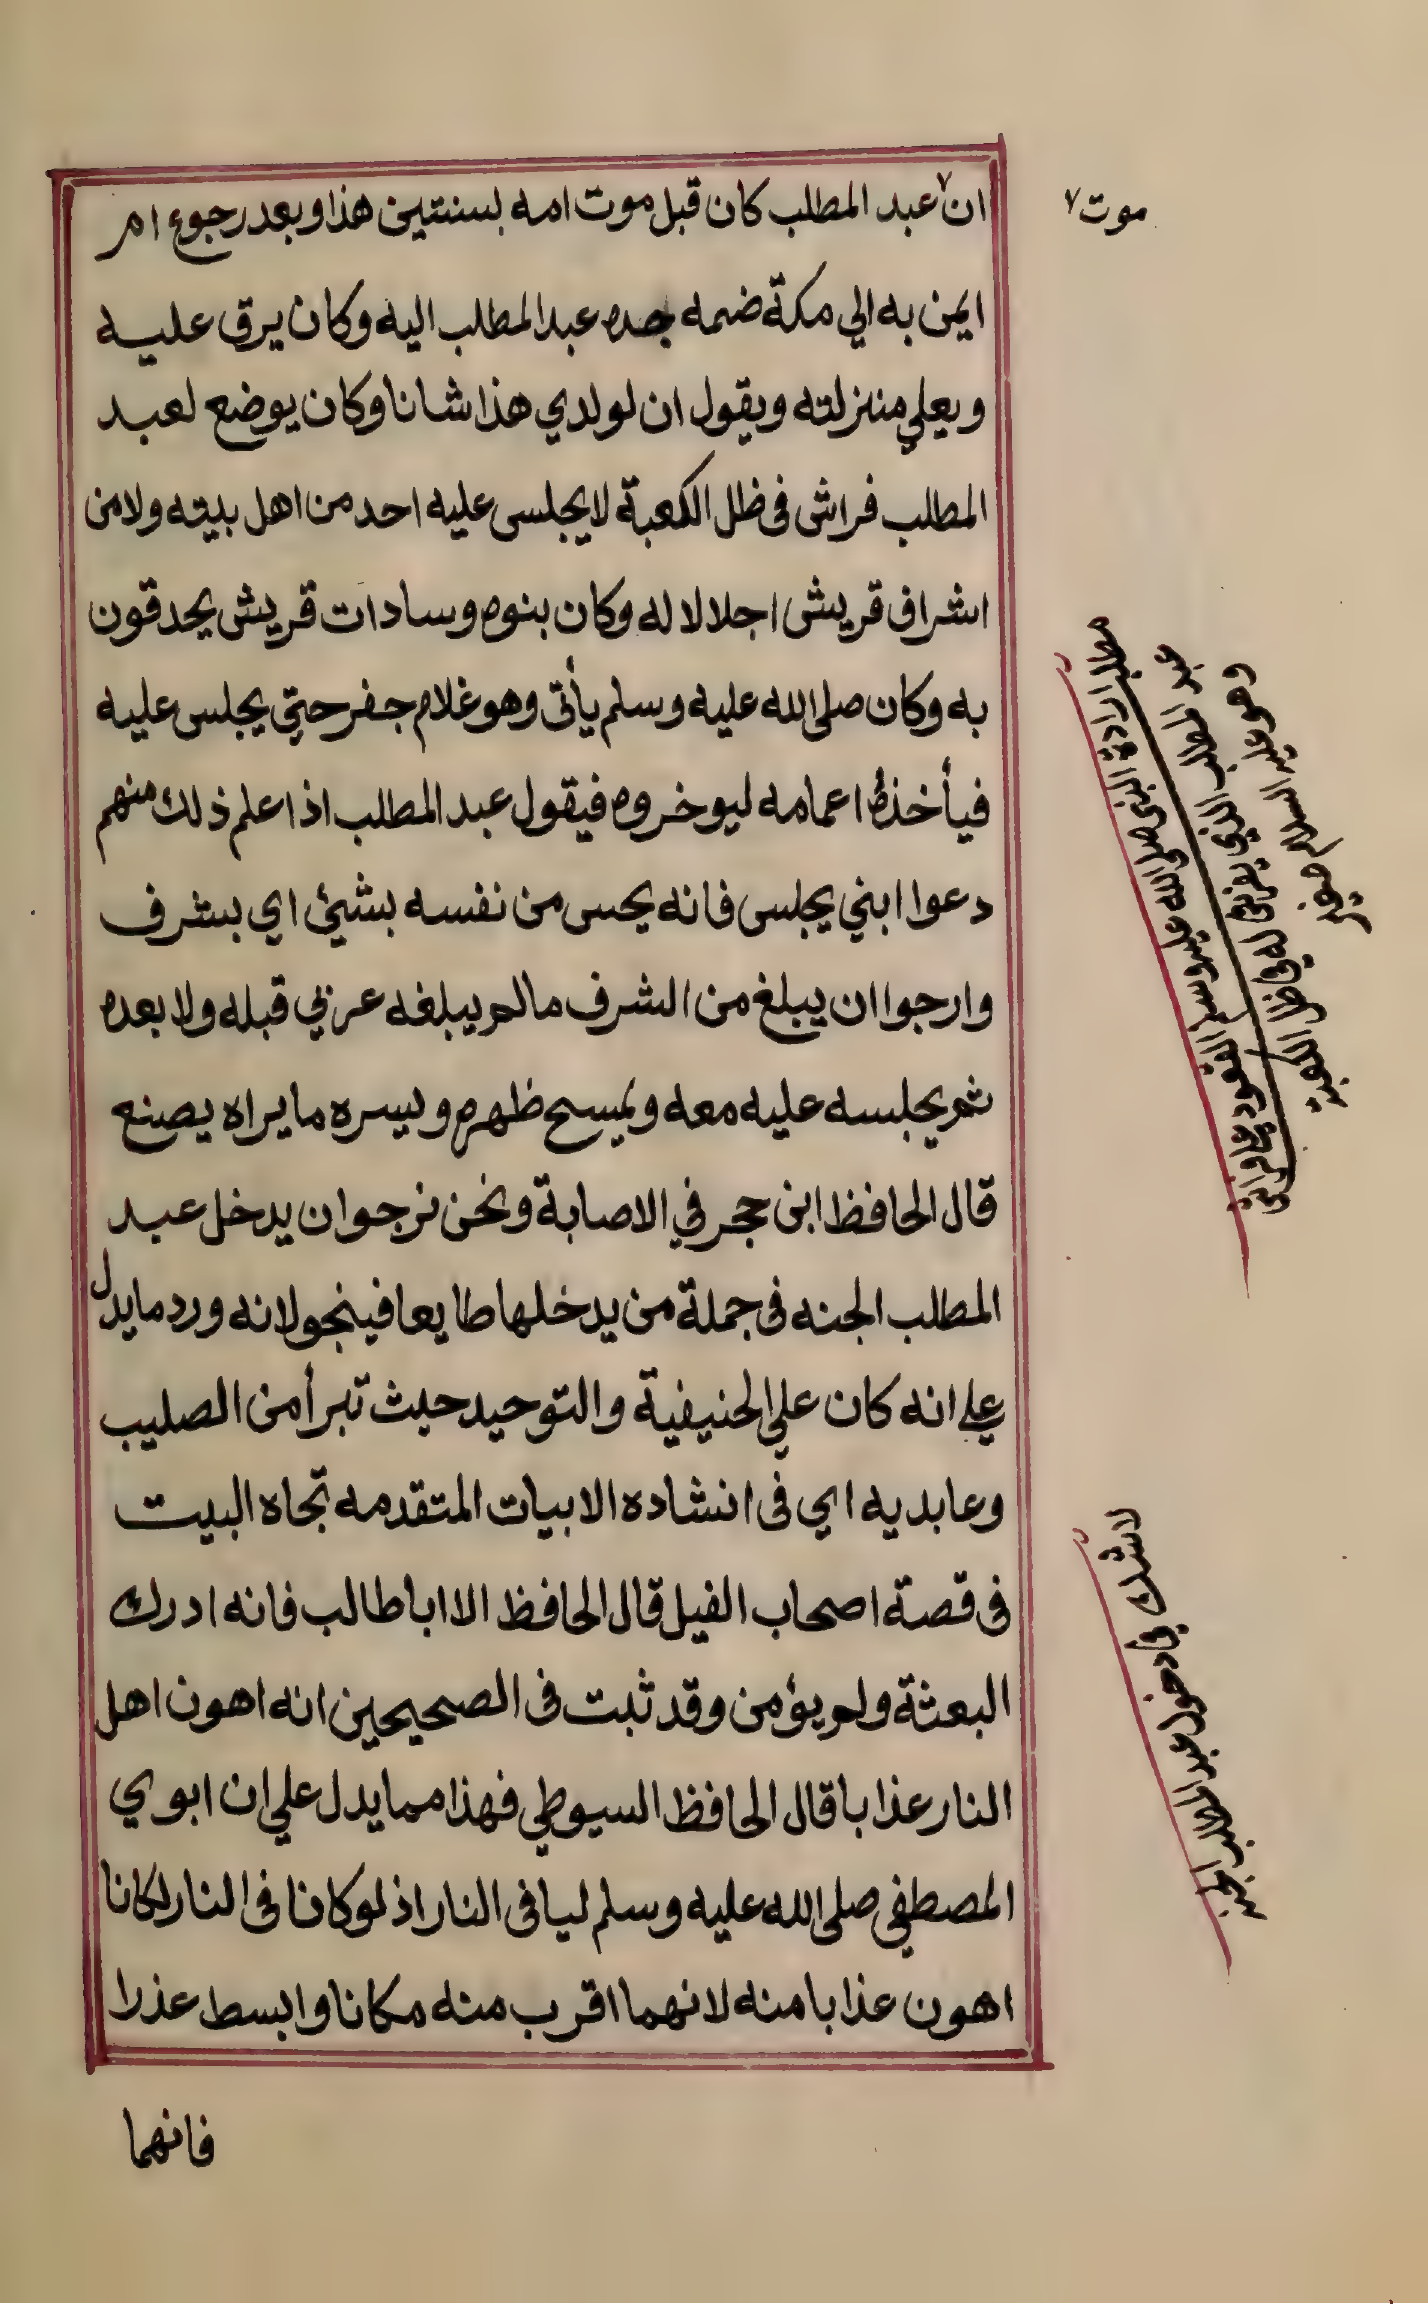 ان٧ عبد المطلب كان قبل موت امه بسنتين هذا وبعد رجوع ام
ايمن به الي مكة ضمه جده عبد المطلب اليه وكان يرق عليه
ويعلي منزلته ويقول ان لولدي هذا شانا وكان يوضع لعبد
المطلب فراش فى ظل الكعبة لا يجلس عليه احد من اهل بيته ولا من
اشراف قريش اجلالا له وكان بنوه وسادات قريش يحدقون
به وكان صلى الله عليه وسلم يأتى وهو غلام جفر حتي يجلس عليه
فيأخذه اعمامه ليوخروه فيقول عبد المطلب اذا علم ذلك منهم
دعوا ابني يجلس فانه يحس من نفسه بشيئ اي بشرف
وارجوا ان يبلغ من الشرف مالم يبلغه عربي قبله ولا بعده
ثم يجلسه عليه معه ويمسح ظهره ويسره ما يراه يصنع
قال الحافظ ابن حجر في الاصابة ونحن نرجوا ن يدخل عبد
المطلب الجنه فى جملة من يدخلها طايعا فينجو لانه ورد مايدل
علي انه كان علي الحنيفية والتوحيد حيث تبرأ من الصليب
وعابديه اي فى انشاده الابيات المتقدمه تجاه البيت
فى قصة اصحاب الفيل قال الحافظ الا ابا طالب فانه ادرك
البعثة ولم يؤمن وقد ثبت فى الصحيحين انه اهون اهل
النار عذابا قال الحافظ السيوطي فهذا مما يدل علي ان ابوي
المصطفي صلى الله عليه وسلم ليا فى النار اذ لو كانا فى النار لكانا
اهون عذابا منه لانهما اقرب منه مكانا وابسط عذرا
فانهما
موت٧
مطلب ارادة النبى صلى الله عليه وسلم القعود على فراش
عبد المطلب الذي يفرش له في ظل الكعبة
وهو عليه السلام صغير
لا شك في دخول عبد المطلب الجنة